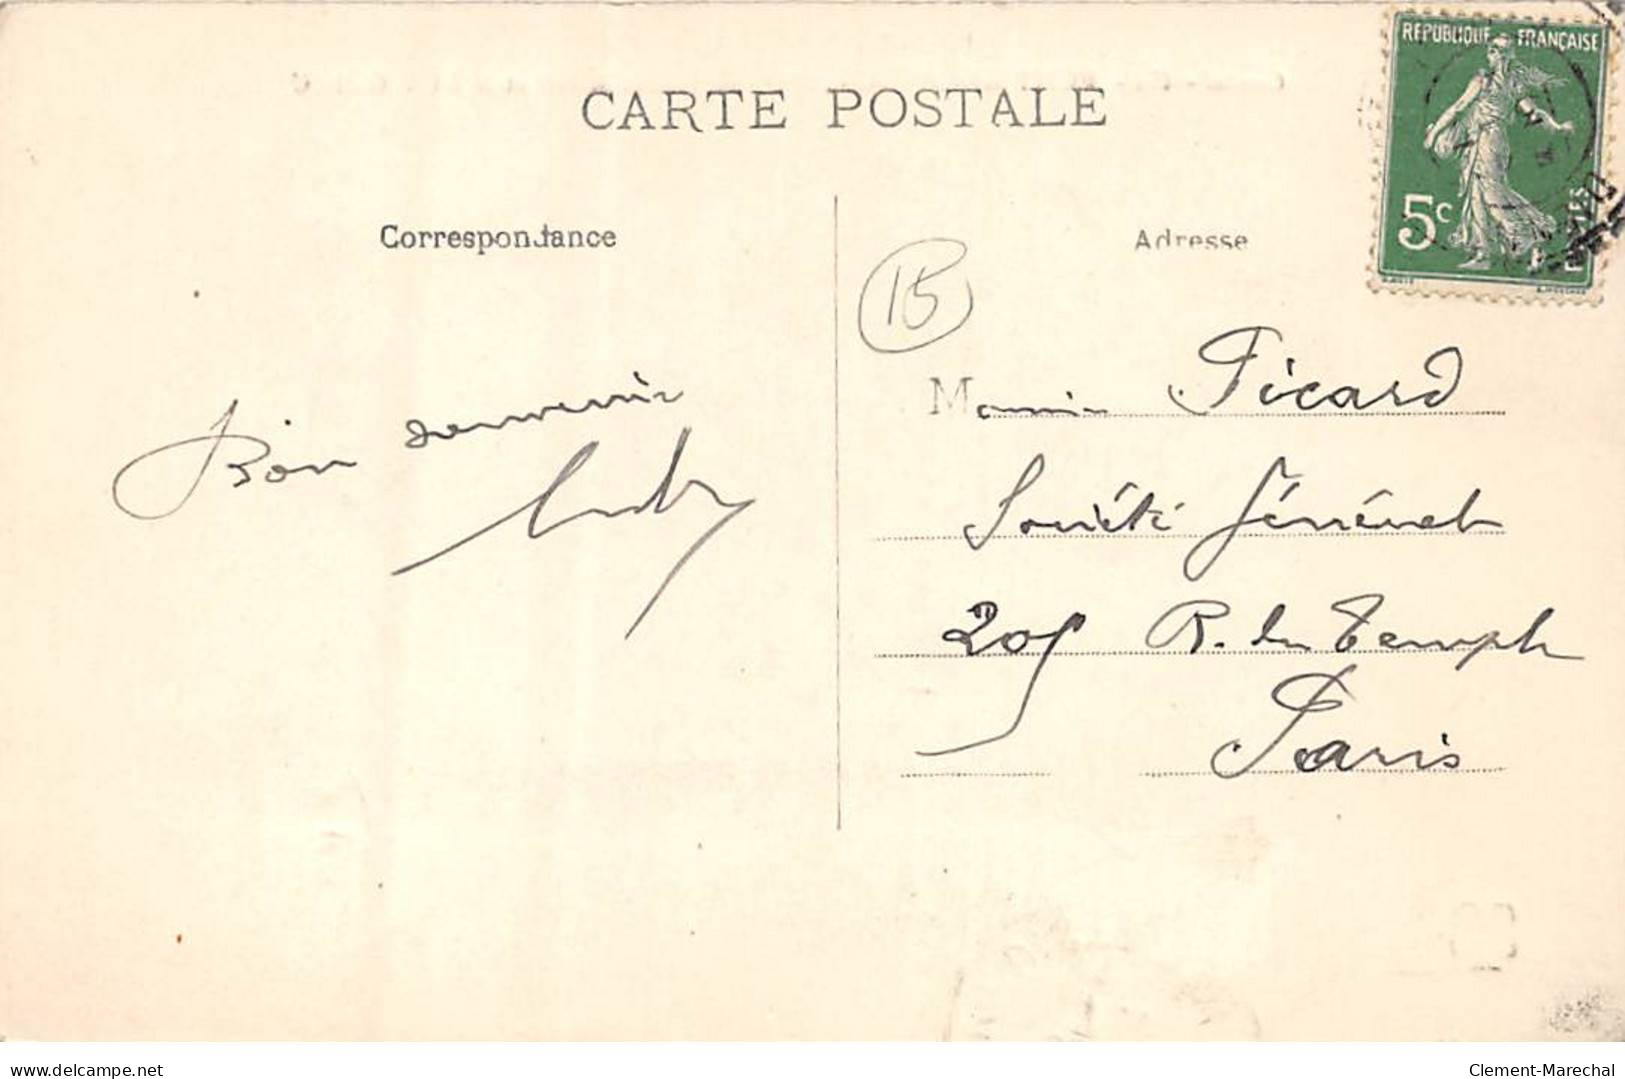 RÉPUBLIQUE FRANÇAISE
CARTE POSTALE
5c
Correspondance
Adresse
15
Picard
Bon souvenir
Société Générale
205 R. du Temple
Paris
delcampe.net
Clement-Marechal